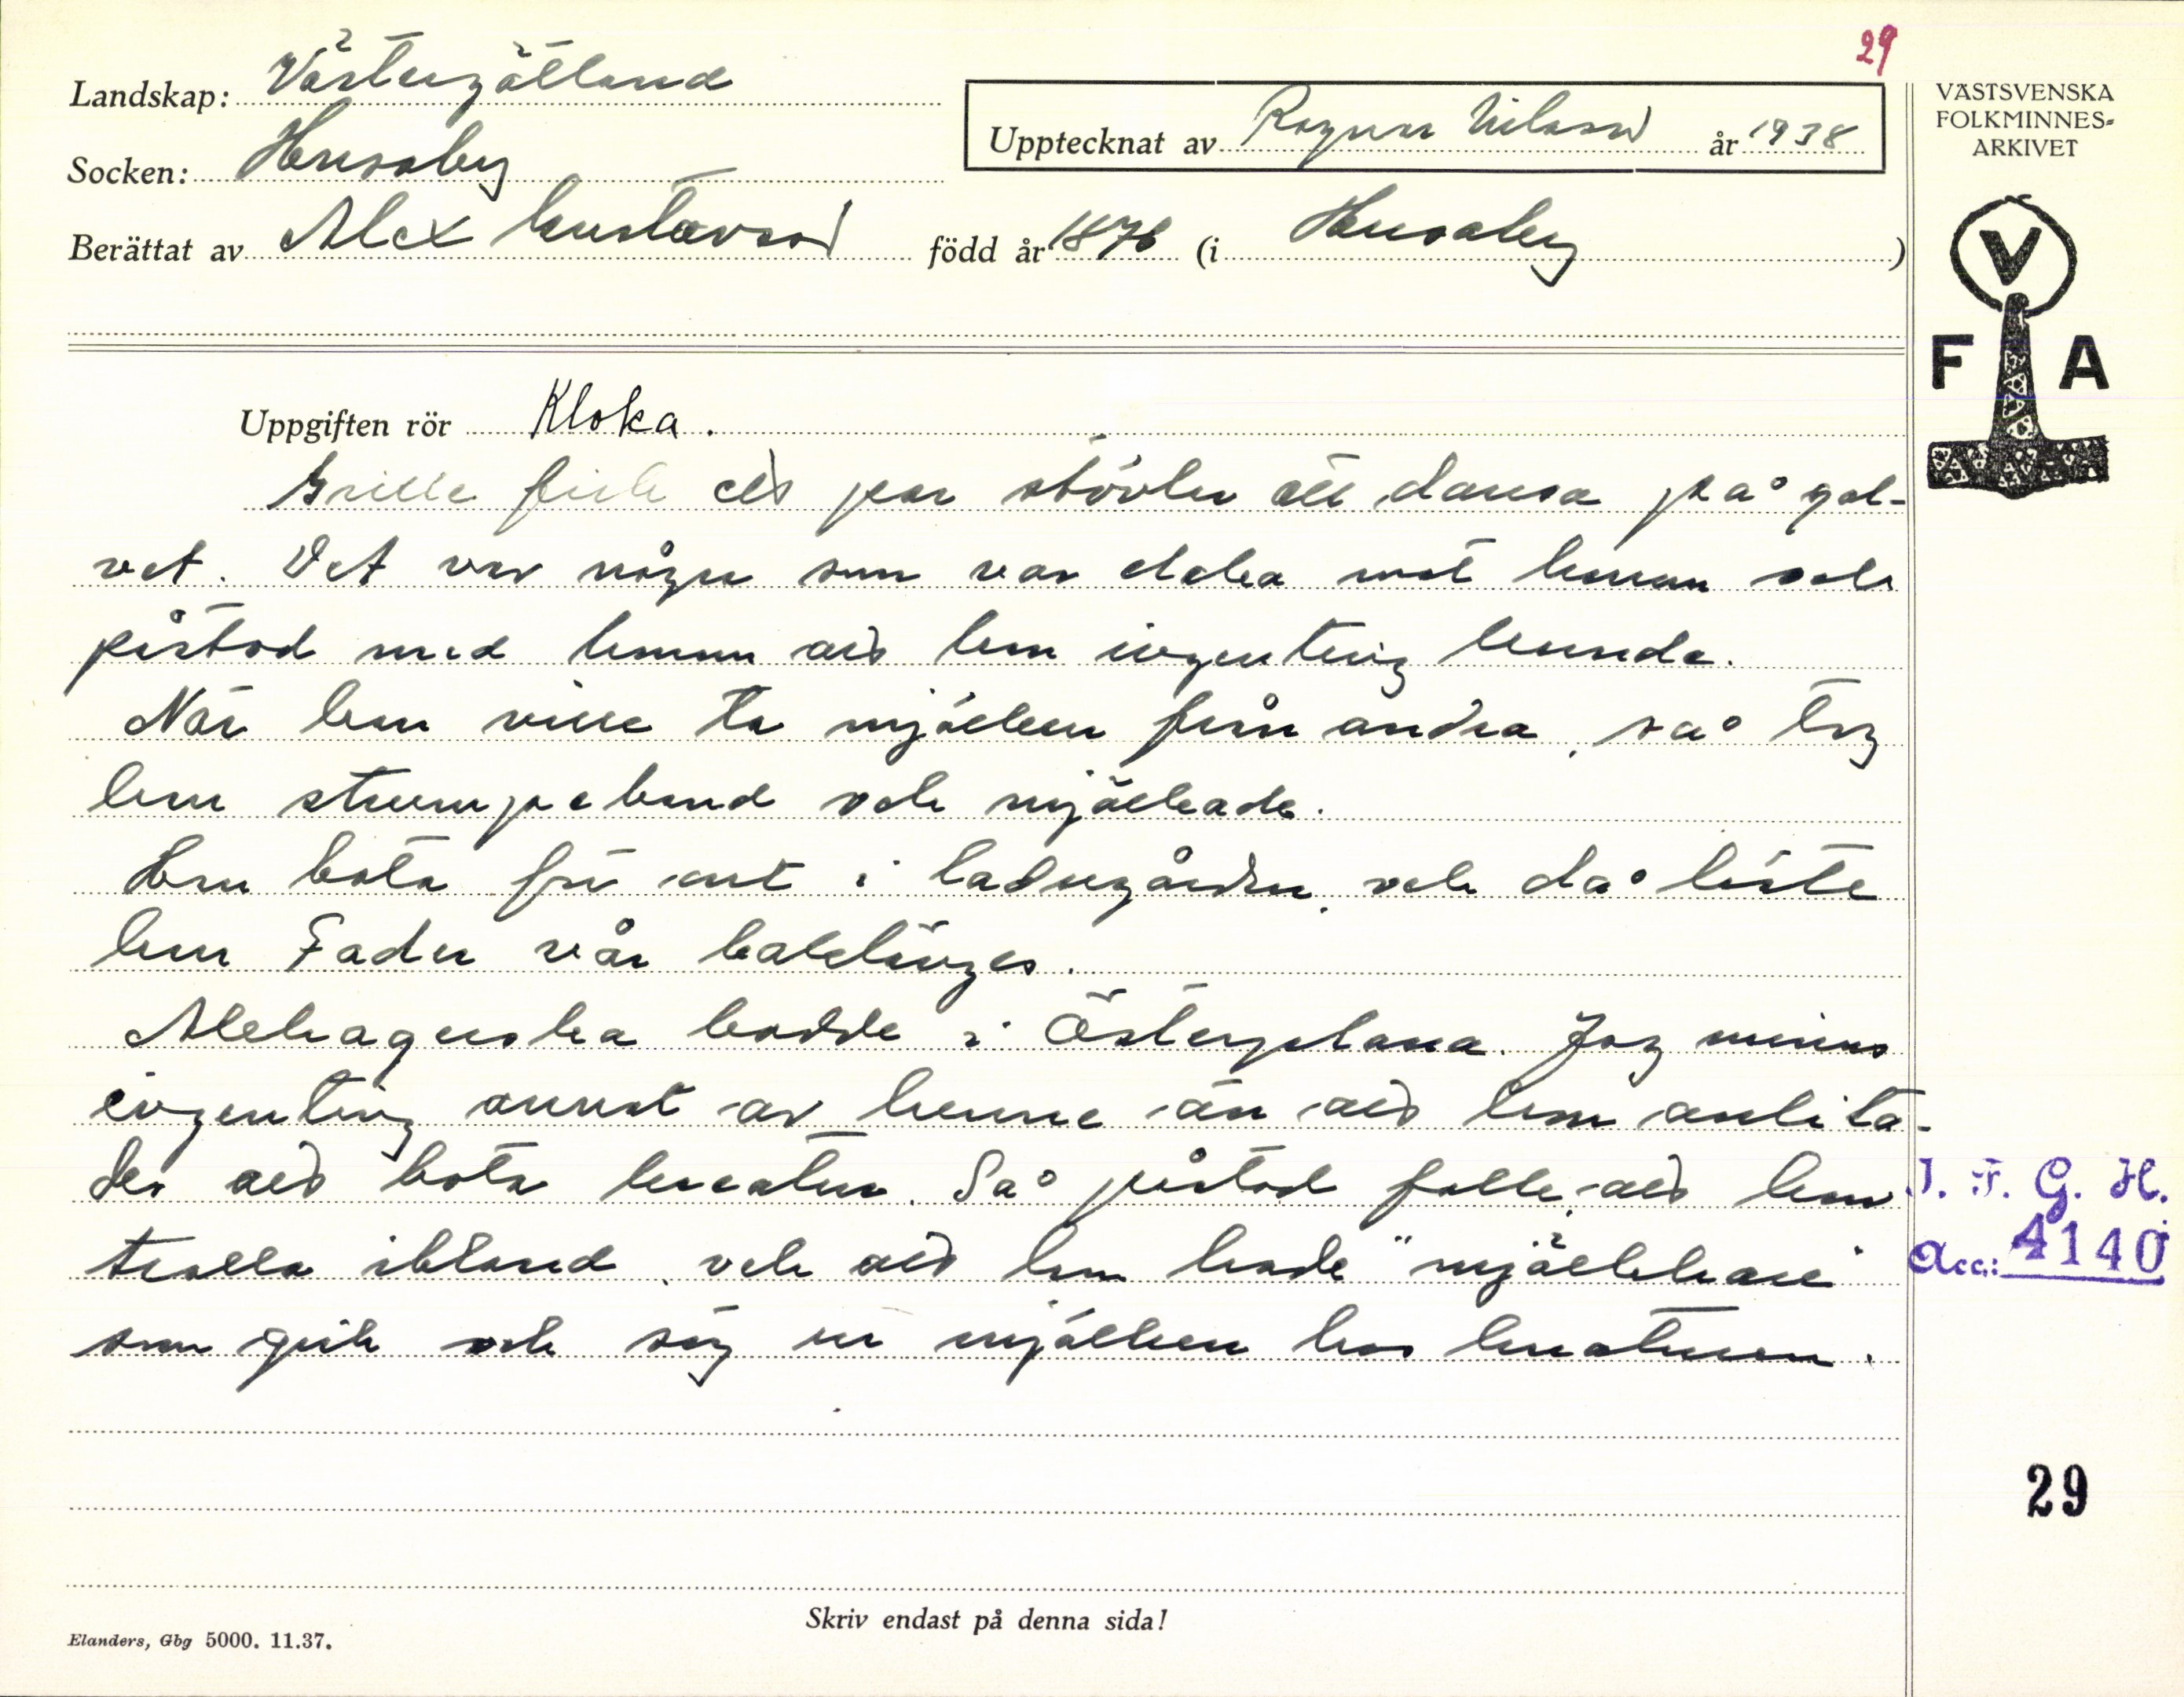 29
Landskap: Västergötland
VÄSTSVENSKA
FOLKMINNES-
ARKIVET
Upptecknat av Ragnar Nilsson år 1938
Socken: Husaby
Berättat av Alex Gustavsson född år 1876 (i Husaby)
V
F A
Uppgiften rör Kloka.
fick ett par stövlar att dansa på gol-
vet. Det var några som var elaka mot honom och
påstod med honom att han ingenting kunde.
När hon ville ta mjölken från andra, så tog
hon strumpeband och mjölkade.
Hon bota fri ont i ladugården, och då läste
hon Fader vår baklänges.
Alehagenska bodde i Österplana. Jag minns
ingenting annat av henne än att hon anlita-
des att bota kreatur. Så påstod folk, att hon
trolla ibland, och att hon hade "mjölkhare"
som gick och sög ur mjölken hos kreaturen.
I. F. G. H.
Acc.: 4140
29
Skriv endast på denna sida!
Elanders, Gbg 5000. 11.37.